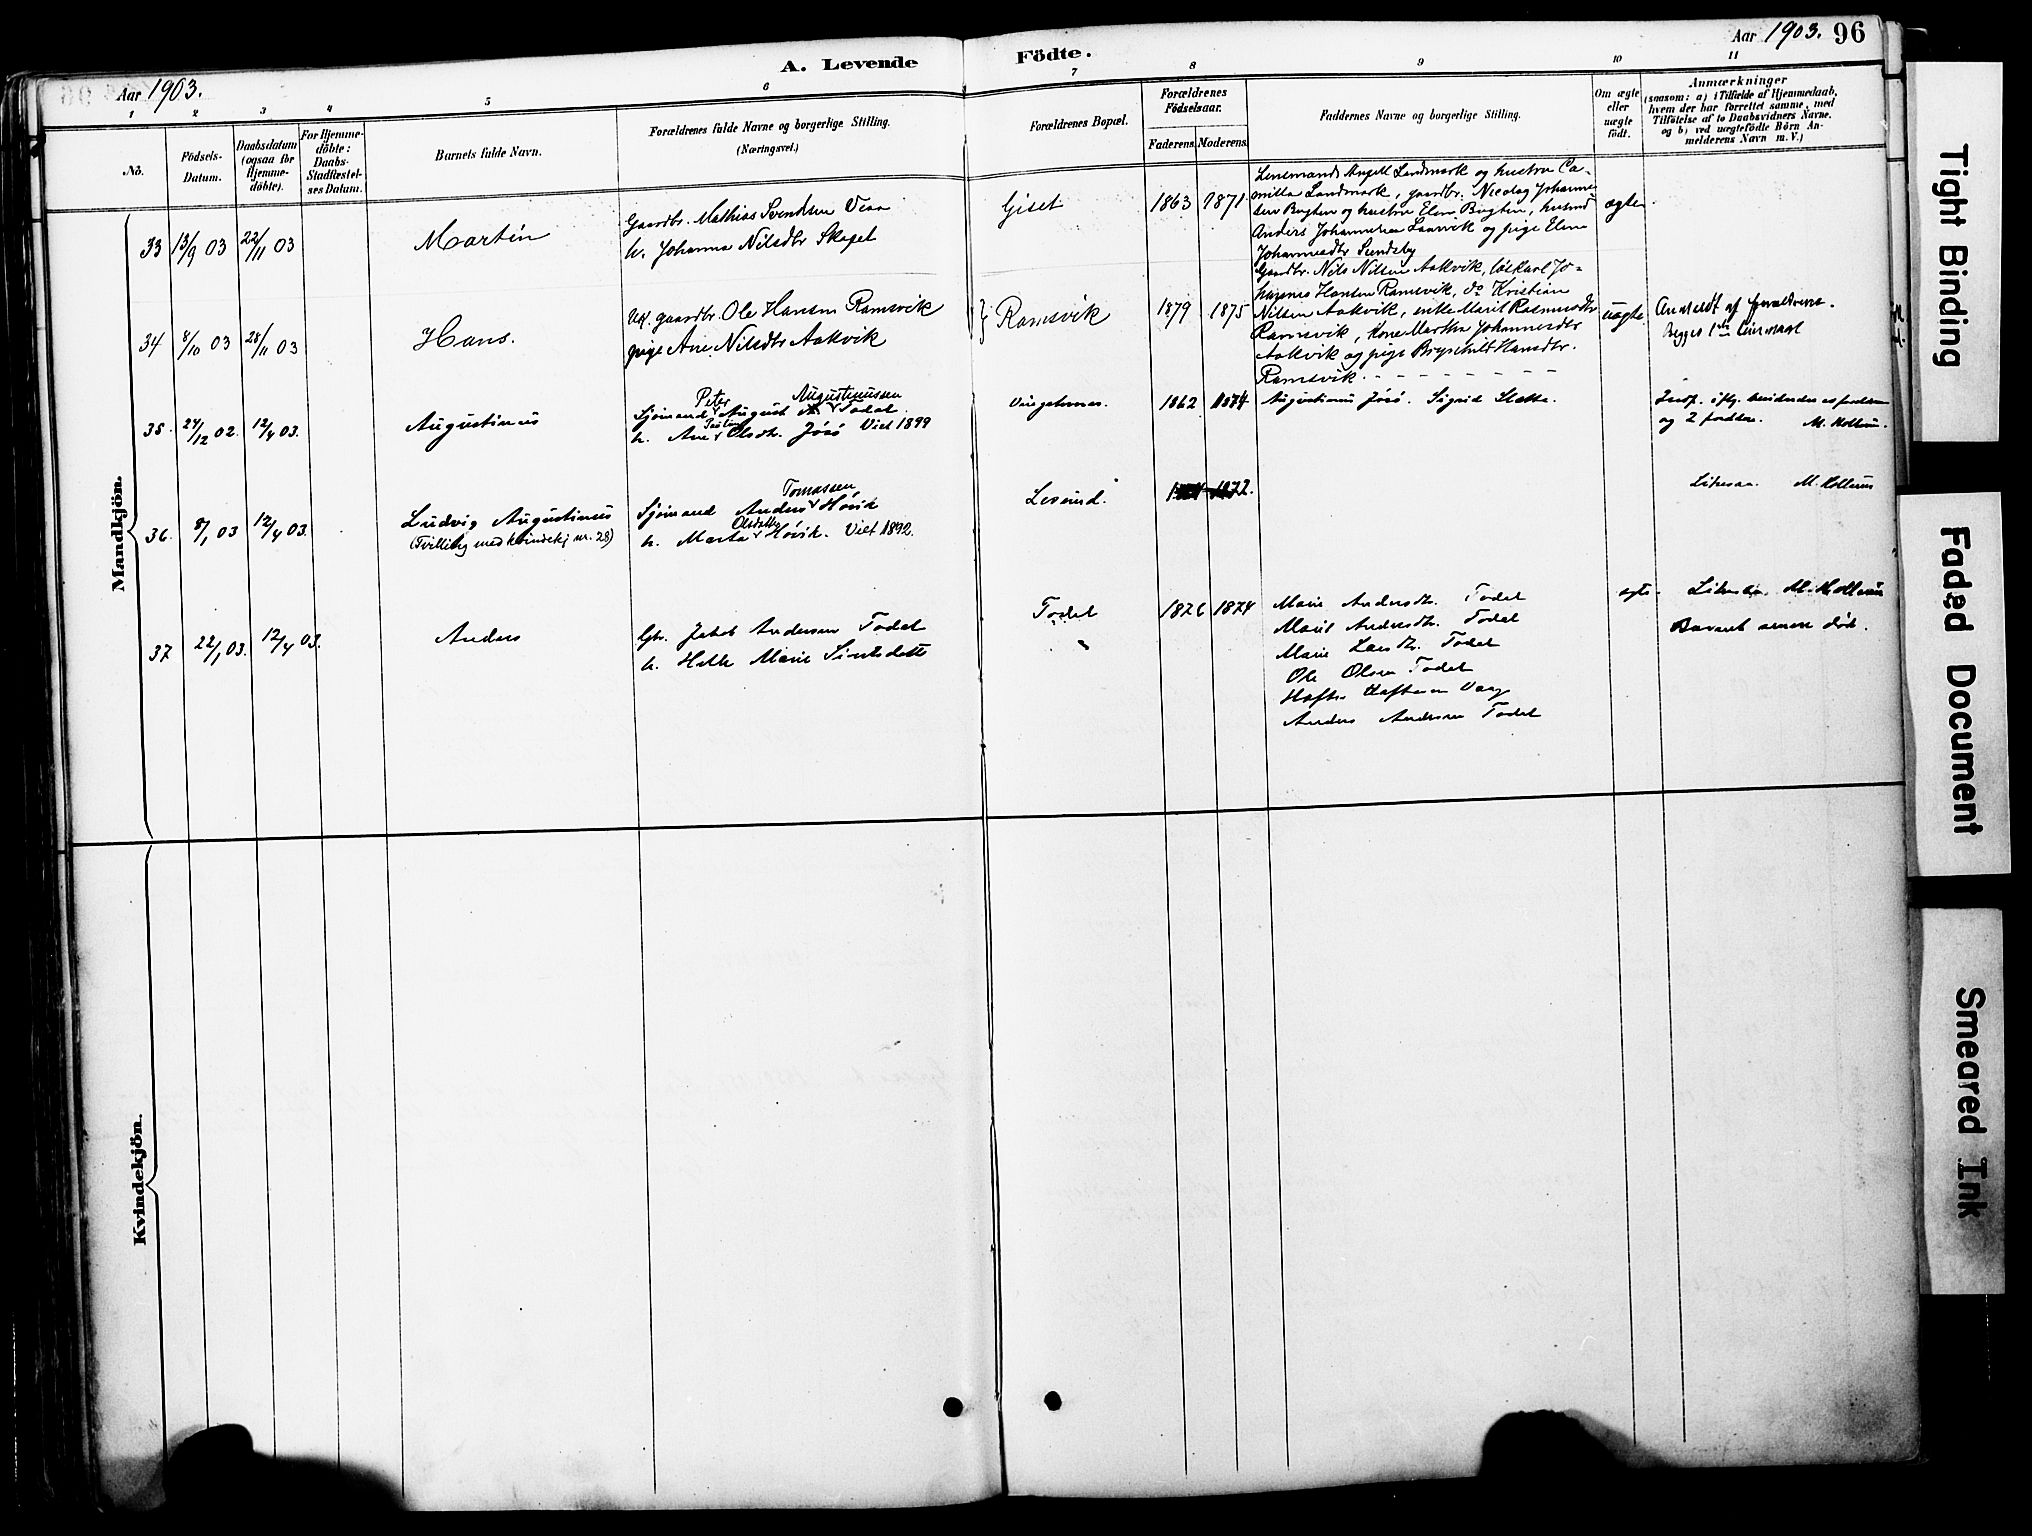 A. Levende Födte.
Aar 1903.
Aar 1903. 96
1 2 3 4 5 6 7 8 9 10 11
No.
Födsels-Datum.
Daabsdatum (ogsaa for Hjemmedöbte).
For Hjemmedöbte: Daabs-Stadfæstelses Datum.
Barnets fulde Navn.
Forældrenes fulde Navne og borgerlige Stilling.
(Næringsvei.)
Forældrenes Bopæl.
Forældrenes Födselsaar.
Faderens. Moderens.
Faddernes Navne og borgerlige Stilling.
Om ægte eller uægte födt.
Anmærkninger
(saasom: a) i Tilfælde af Hjemmedaab,
hvem der har forrettet samme, med
Tilföielse af to Daabsvidners Navne,
og b) ved uægtefödte Börn Anmelderens Navn m. V.)
Mandkjön.
33 13/9 03 22/11 03 Martin
Gaardbr. Mathias Svendsen
h. Johanna Nilsdtr Skapet
Giset 1863 1871
Lensmand Angell Landmark og hustru Ca-
milla Landmark, gaardbr. Nicolay Johanne-
sen Bugten og hustru Elen Bugten, husmd
Anders Johannesen og pige Elen
Johannesdtr
ægte
34 8/10 03 28/11 03 Hans.
Uk. gaardbr. Ole Hansen Ramsvik
pige Ane Nilsdtr Aakvik
Ramsvik 1879 1875
Gaardbr. Nils Nilsen Aakvik, löskarl Jo-
hannes Hansen Ramsvik, do Kristian
Nilsen Aakvik, enke Marit Rasmusdtr
Ramsvik, kone Martha Johannesdtr
Aakvik og pige Brynhild Hansdtr.
Ramsvik.
uægte
Anmeldt af forældrene.
Begges 1ste Leiermaal
35. 27/12 02. 12/4 03. Augustinus
Peter Augustinussen
Sjömand August A. Todal.
h. Ane Olsdtr. Jösö Viet 1899
1862 1874
Augustinus Jösö. Sigrid
og 2 faddere. M.
36. 8/1 03 12/4 03. Ludvig Augustinus
(Tvilling med kvindekj. nr. 28)
Tomassen
Sjömand Anders Hövik
Olsdatter
h. Marta Hövik. Viet 1892.
1872.
M.
37 22/1 03. 12/4 03. Anders
Gbr. Jakob Andersen Todal
h. Marie
Todal 1876 1874
Marie Andersdtr. Todal
Marit Andersdtr. Todal
Marie Larsdtr. Todal
Ole Olsen Todal
Haften Haftensen Vaag
Anders Andersen Todal
ægte
M.
Barnet senere död.
Kvindekjön.
Tight Binding
Faded Document
Smeared Ink